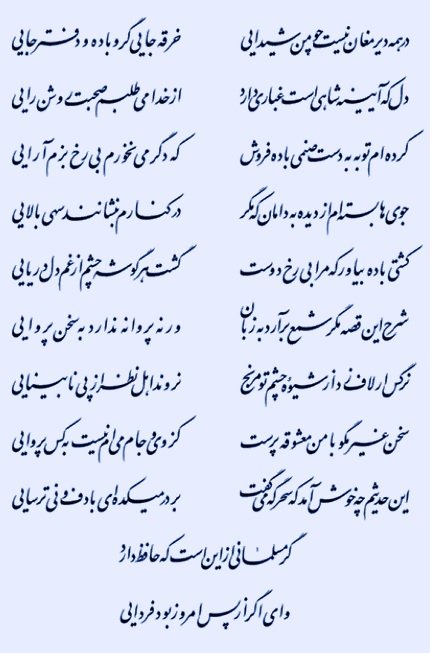 در همه دیر مغان نیست چو من شیدایی خرقه جایی گرو باده و دفتر جایی
دل که آیینه شاهی است غباری دارد از خدا می‌طلبم صحبت روشن رایی
کرده‌ام توبه به دست صنمی باده فروش که دگر می نخورم بی رخ بزم آرایی
جوی‌ها بسته‌ام از دیده به دامان که مگر در کنارم بنشانند سهی بالایی
کشتی باده بیاور که مرا بی رخ دوست گشت هر گوشه چشم از غم دل دریایی
شرح این قصه مگر شمع برآرد به زبان ور نه پروانه ندارد به سخن پروایی
نرگس ار لاف زد از شیوه چشم تو مرنج نروند اهل نظر از پی نابینایی
سخن غیر مگو با من معشوقه پرست کز وی و جام می‌ام نیست به کس پروایی
این حدیثم چه خوش آمد که سحرگه می‌گفت بر در میکده‌ای با دف و نی ترسایی
گر مسلمانی از این است که حافظ دارد
وای اگر از پس امروز بود فردایی